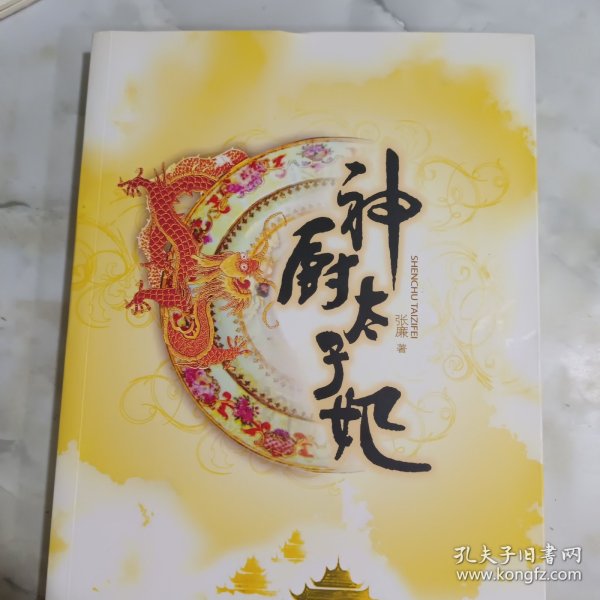 神厨太子妃
SHENCHU TAIZIFEI
张廉 著
孔夫子旧書网
www.kongfz.com